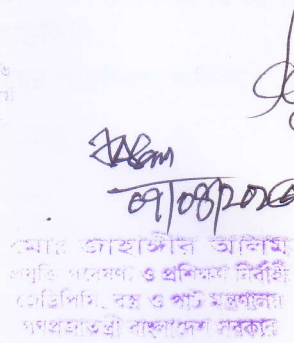 09/08/202
মোঃ জাহাঙ্গীর আলম
প্রযুক্তি গবেষণা ও প্রশিক্ষণ নির্বাহী
জেডিপিসি, বস্ত্র ও পাট মন্ত্রণালয়
গণপ্রজাতন্ত্রী বাংলাদেশ সরকার